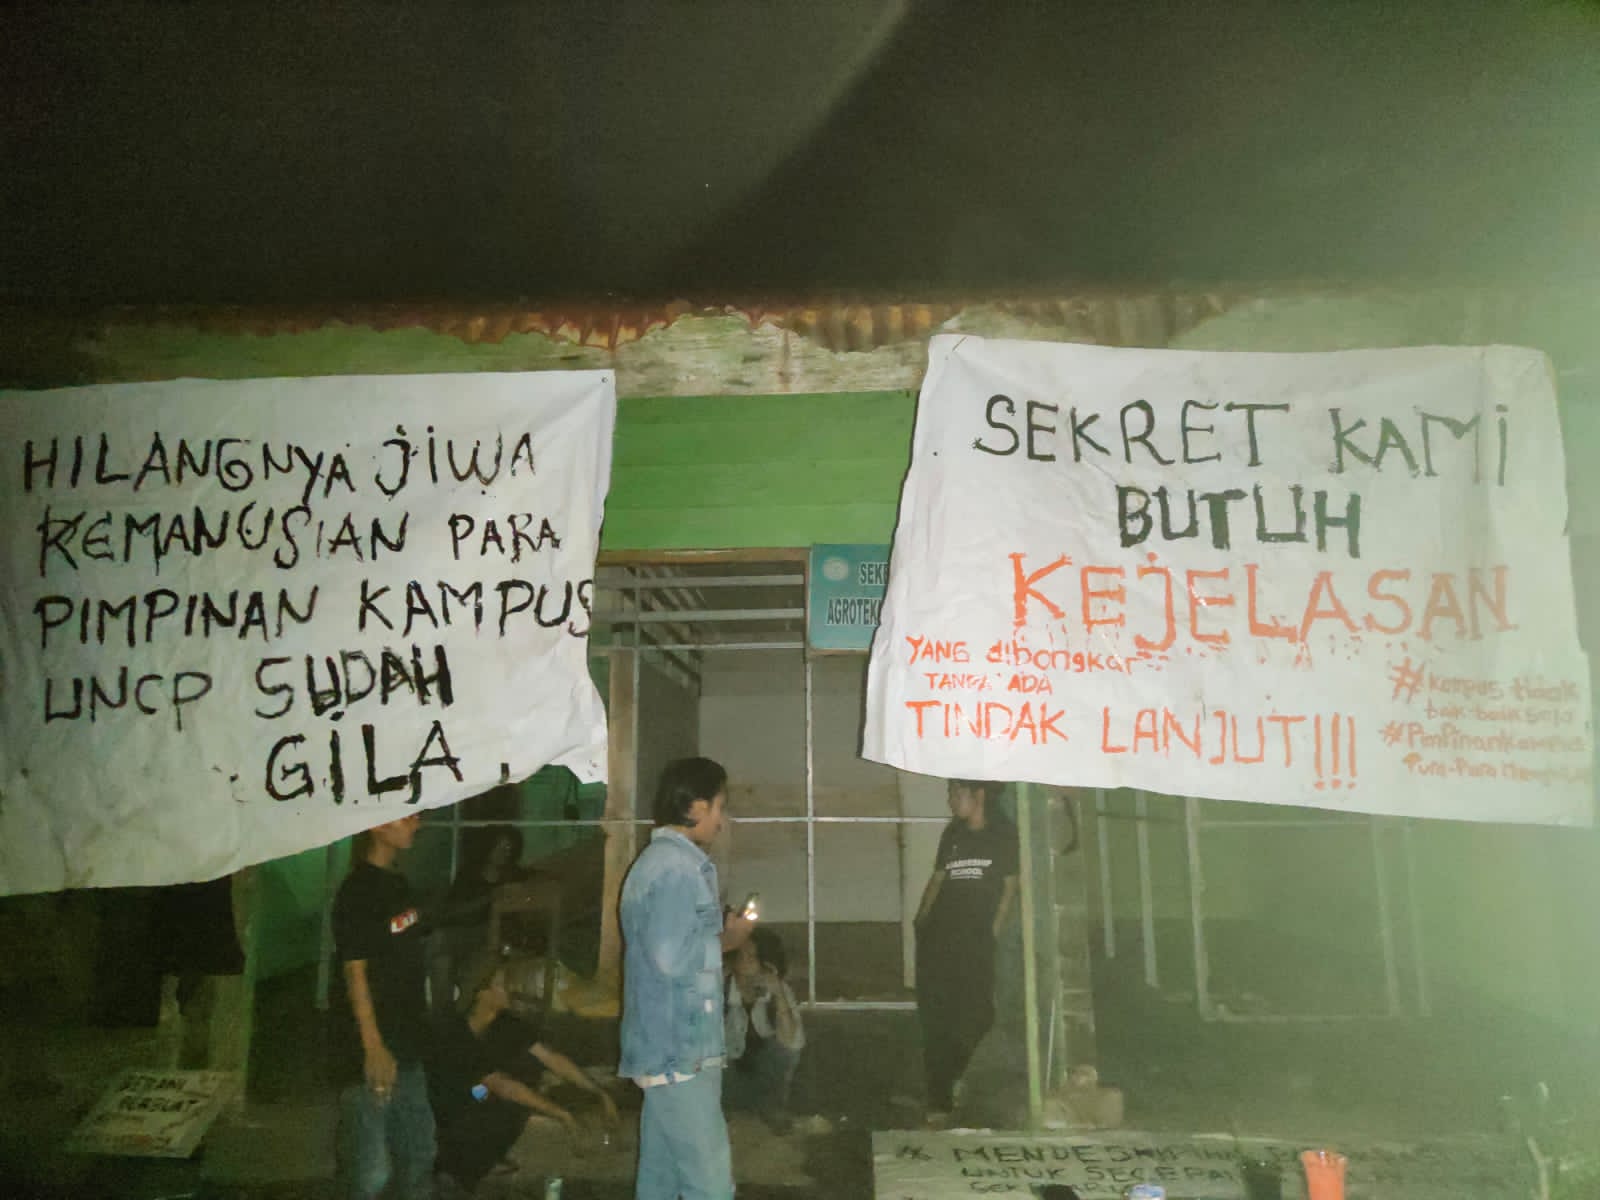 HILANGNYA JIWA
KEMANUSIAN PARA
PIMPINAN KAMPUS
UNCP SUDAH
GILA.
SEKRET KAMI
BUTUH
KEJELASAN
YANG dibongkar
TANPA ADA
TINDAK LANJUT!!!
#kampus tidak
baik-baik saja
#PimPinankampus
Pura-Pura
SEK
AGROTEK
LEADERSHIP
SCHOOL
BERANI
BERBUAT
UNTUK SEGERA